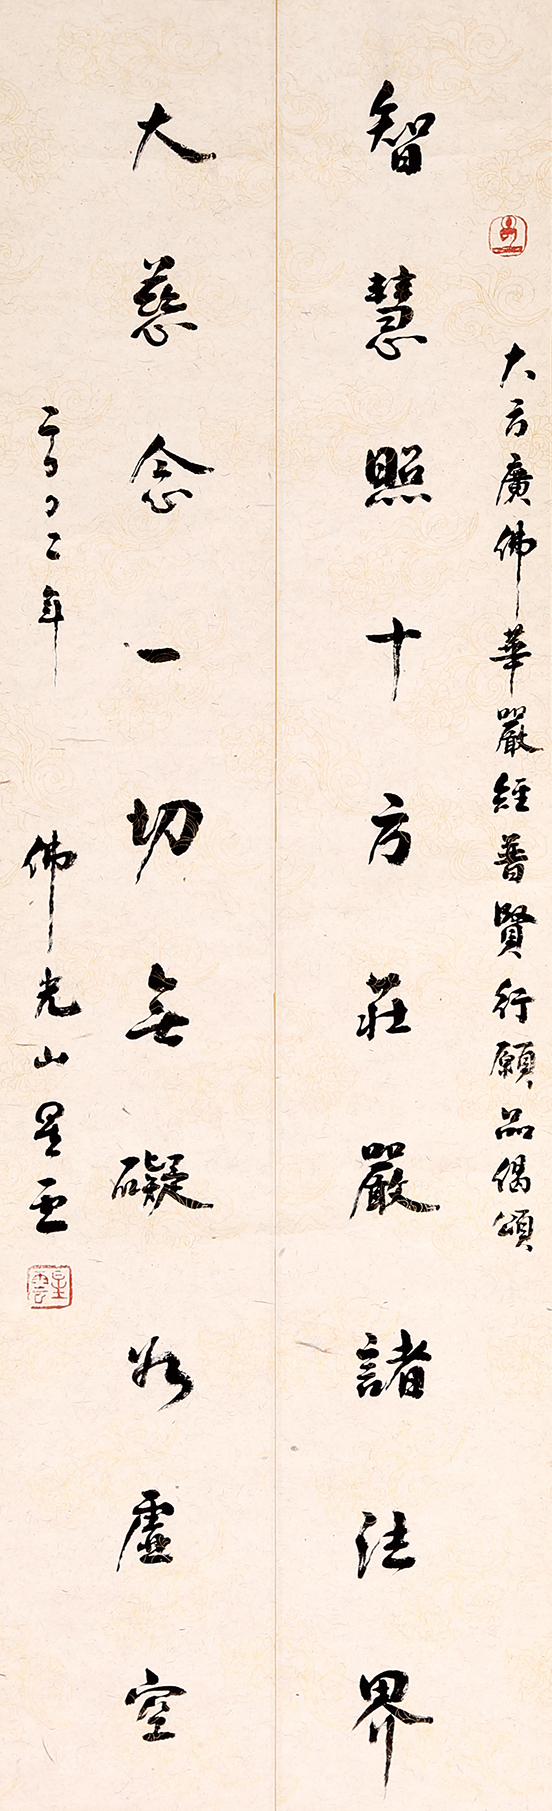 大方廣佛華嚴經普賢行願品偈頌
智慧照十方莊嚴諸法界
大慈念一切無礙如虛空
二〇〇二年
佛光山星雲
星雲